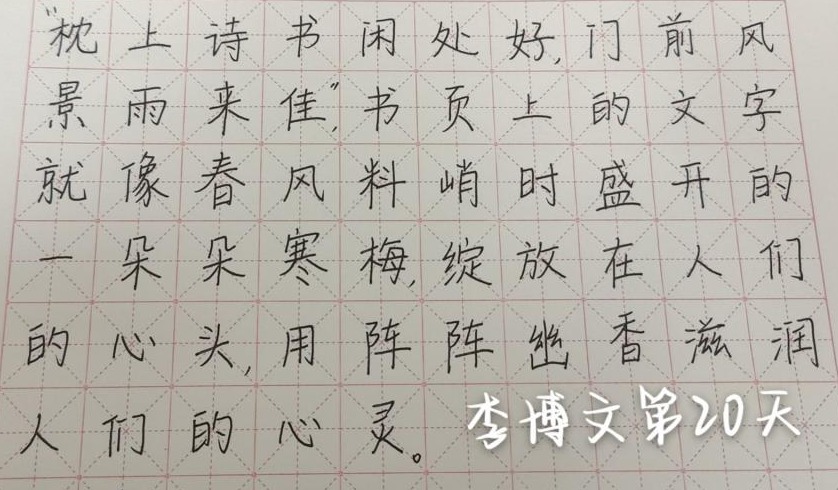 “枕上诗书闲处好,门前风
景雨来佳”,书页上的文字
就像春风料峭时盛开的
一朵朵寒梅,绽放在人们
的心头,用阵阵幽香滋润
人们的心灵。
李博文第20天